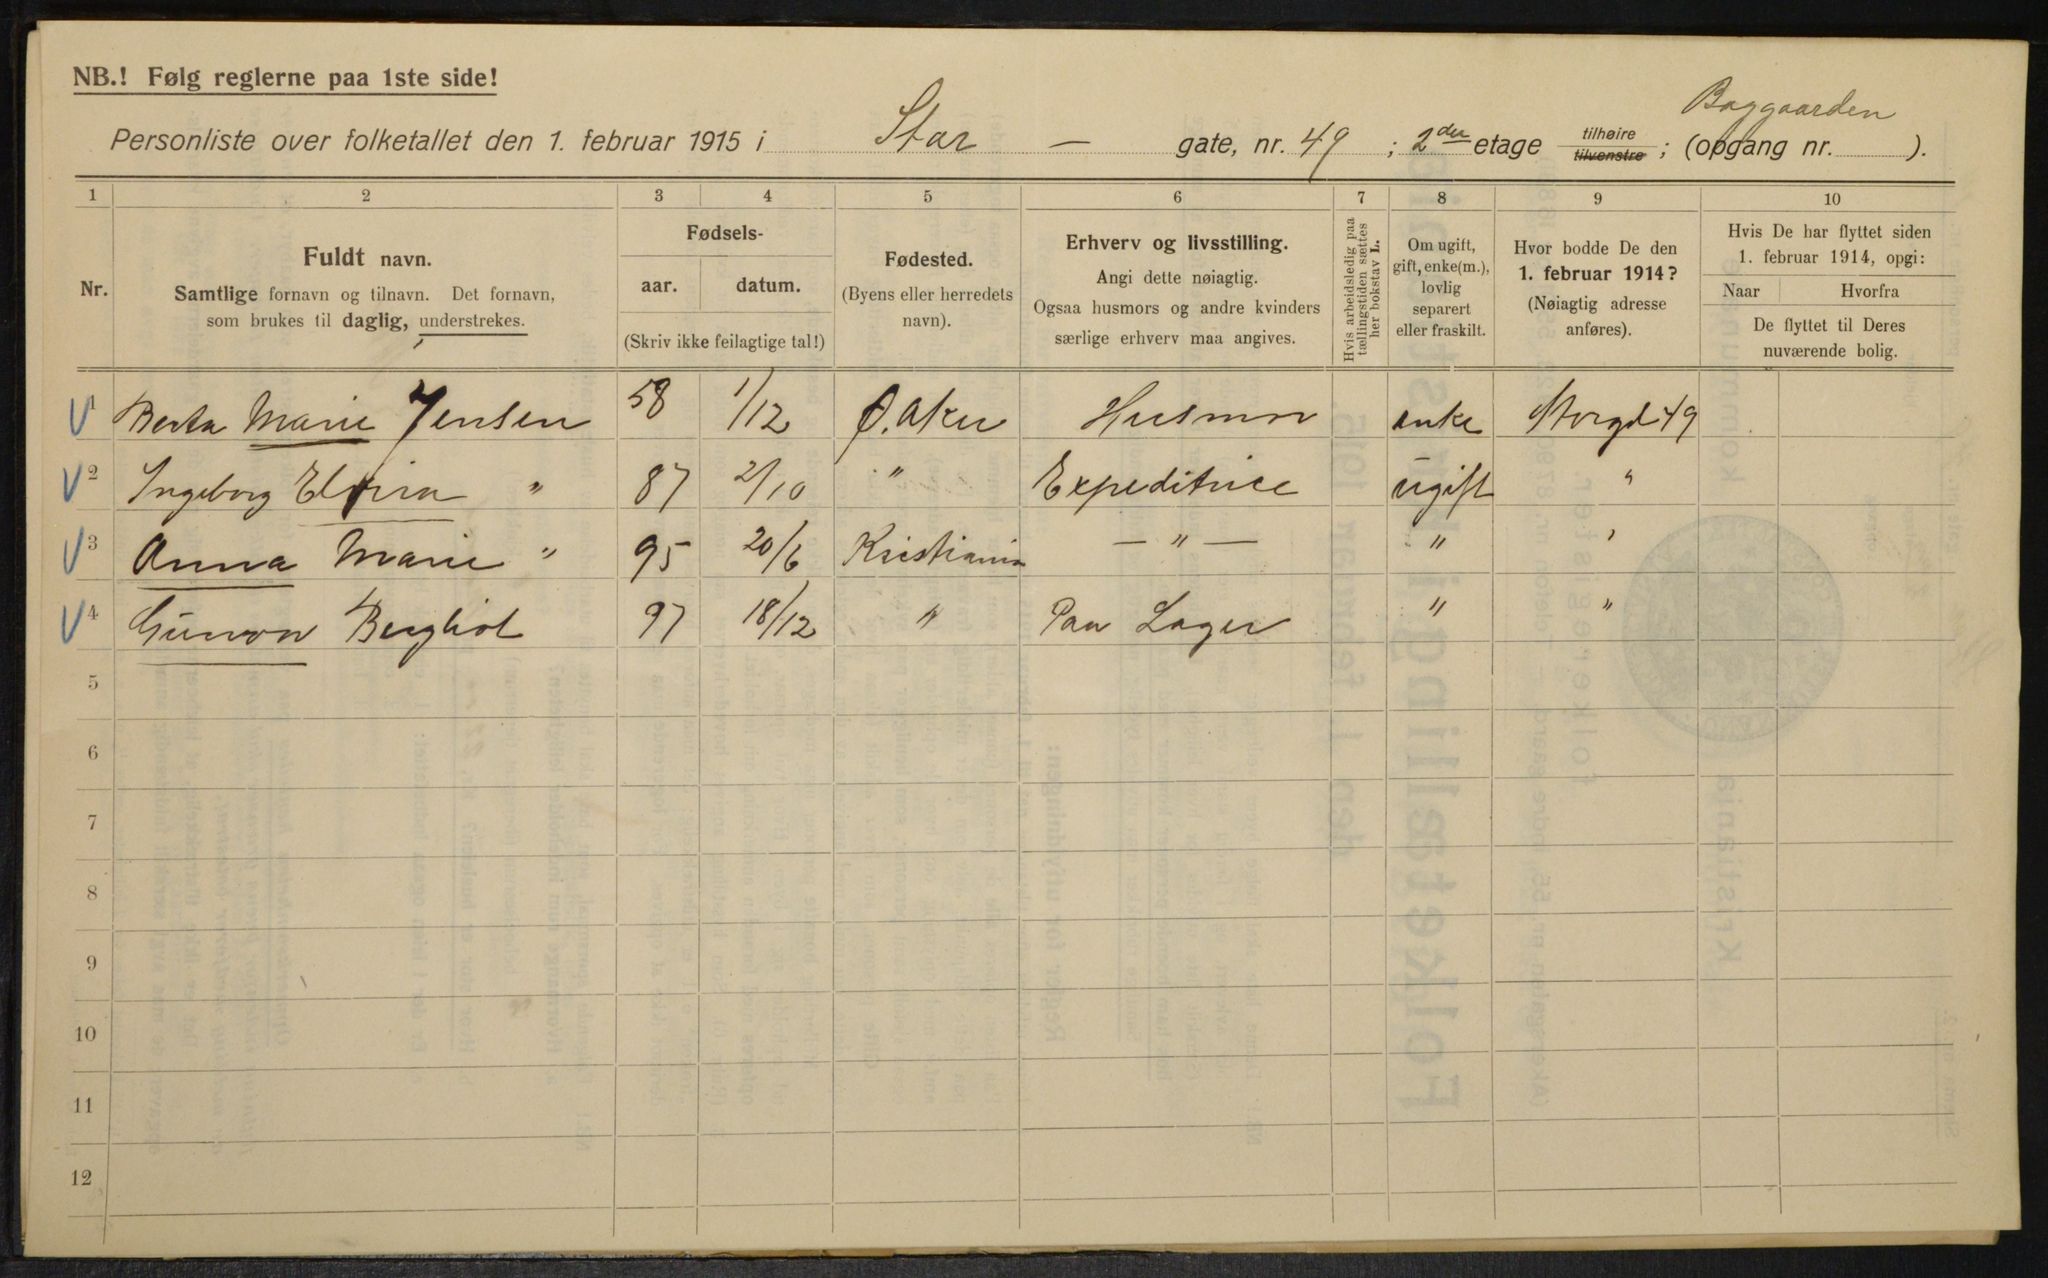 NB.! Følg reglerne paa 1ste side!
Baggaarden
Personliste over folketallet den 1. februar 1915 i Stor — gate, nr. 49 ; 2den etage tilhøire tilvenstre ; (opgang nr. ).
1 2 3 4 5 6 7 8 9 10
Nr.
Fuldt navn.
Samtlige fornavn og tilnavn. Det fornavn,
som brukes til daglig, understrekes.
Fødsels-
aar. datum.
(Skriv ikke feilagtige tal!)
Fødested.
(Byens eller herredets
navn).
Erhverv og livsstilling.
Angi dette nøiagtig.
Ogsaa husmors og andre kvinders
særlige erhverv maa angives.
Hvis arbeidsledig paa
tællingstiden sættes
her bokstav L.
Om ugift,
gift, enke(m.),
lovlig
separert
eller fraskilt.
Hvor bodde De den
1. februar 1914?
(Nøiagtig adresse
anføres).
Hvis De har flyttet siden
1. februar 1914, opgi:
Naar Hvorfra
De flyttet til Deres
nuværende bolig.
1 Berta Marie Jensen 58 1/12 Ø. Aker Husmor enke Storgd 49
2 Ingeborg Elvira " 87 2/10 " Expeditrice ugift "
3 Anna Marie " 95 20/6 Kristiania — " — " '
4 Gunvor Bergliot 97 18/12 " Paa Lager " "
5
6
7
8
9
10
11
12